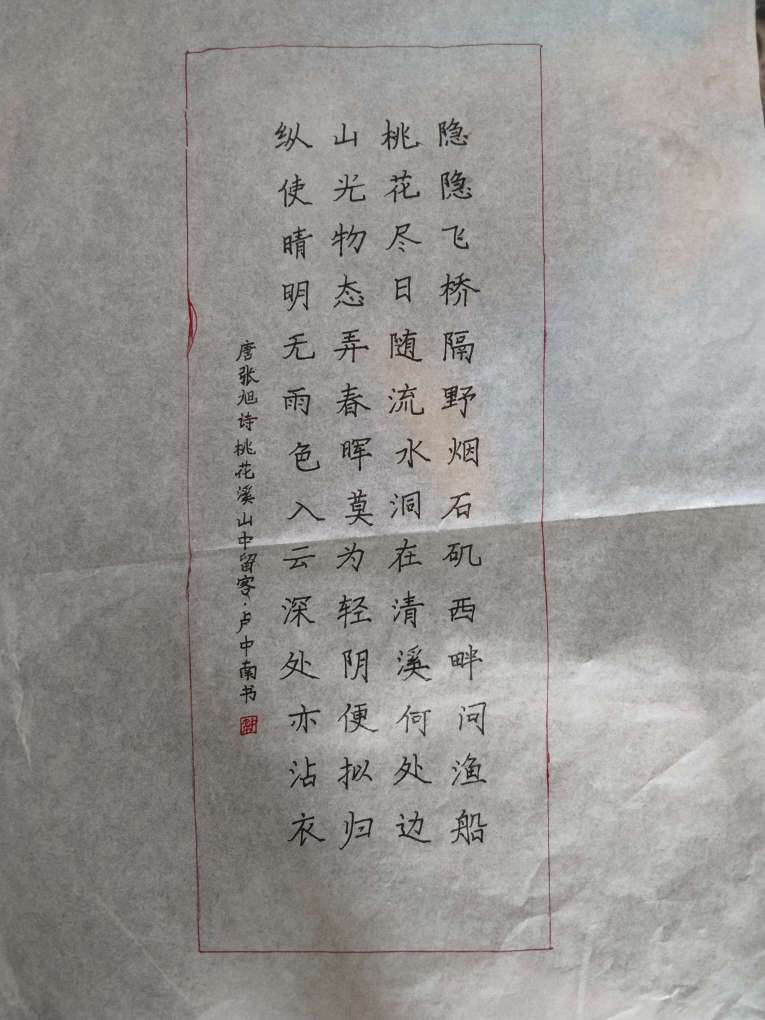 隐隐飞桥隔野烟石矶西畔问渔船
桃花尽日随流水洞在清溪何处边
山光物态弄春晖莫为轻阴便拟归
纵使晴明无雨色入云深处亦沾衣
唐张旭诗桃花溪山中留客·卢中南书